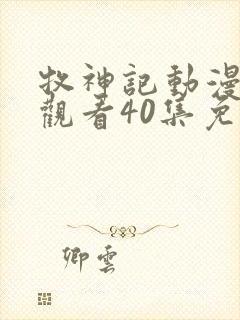 牧神記動漫
觀看40集免
卿雲